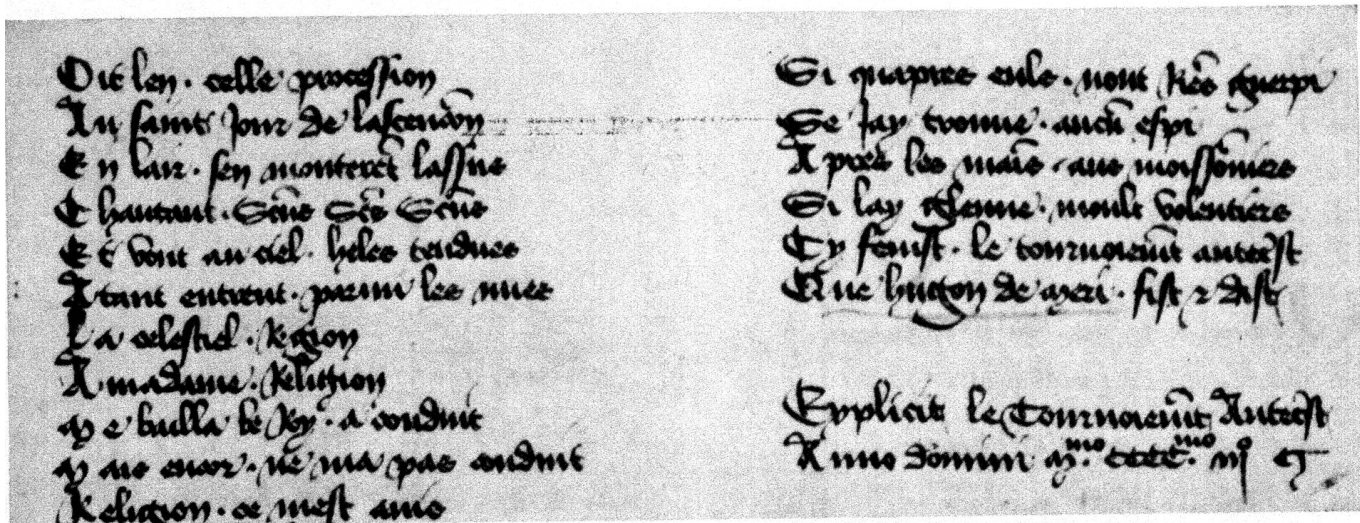 Dit len . celle procession
Au saint Jour de lascencōn
En lair . sen monterēt lassus
Chantant . Scūs Scūs Scūs
Et vont au ciel . heles tendues
Atant entrent . parmi les nues
La celestiel . Region
A madame . Religion
Me bailla le Roy . a conduit
Mais encor . ne ma pas conduit
Religion . ce mest auis
Si quapres eulx . nont Riēs guerpi
Se Jay trouue . aucū espi
Apres les mais . aus moissōniers
Si lay glenne . moult volentiers
Cy fenist . le tournoiemēt antecrist
Que hugon de meri . fist z dist
Explicit le Tournoiemēt Antecrist
Anno domini m.mo cccc.mo iij